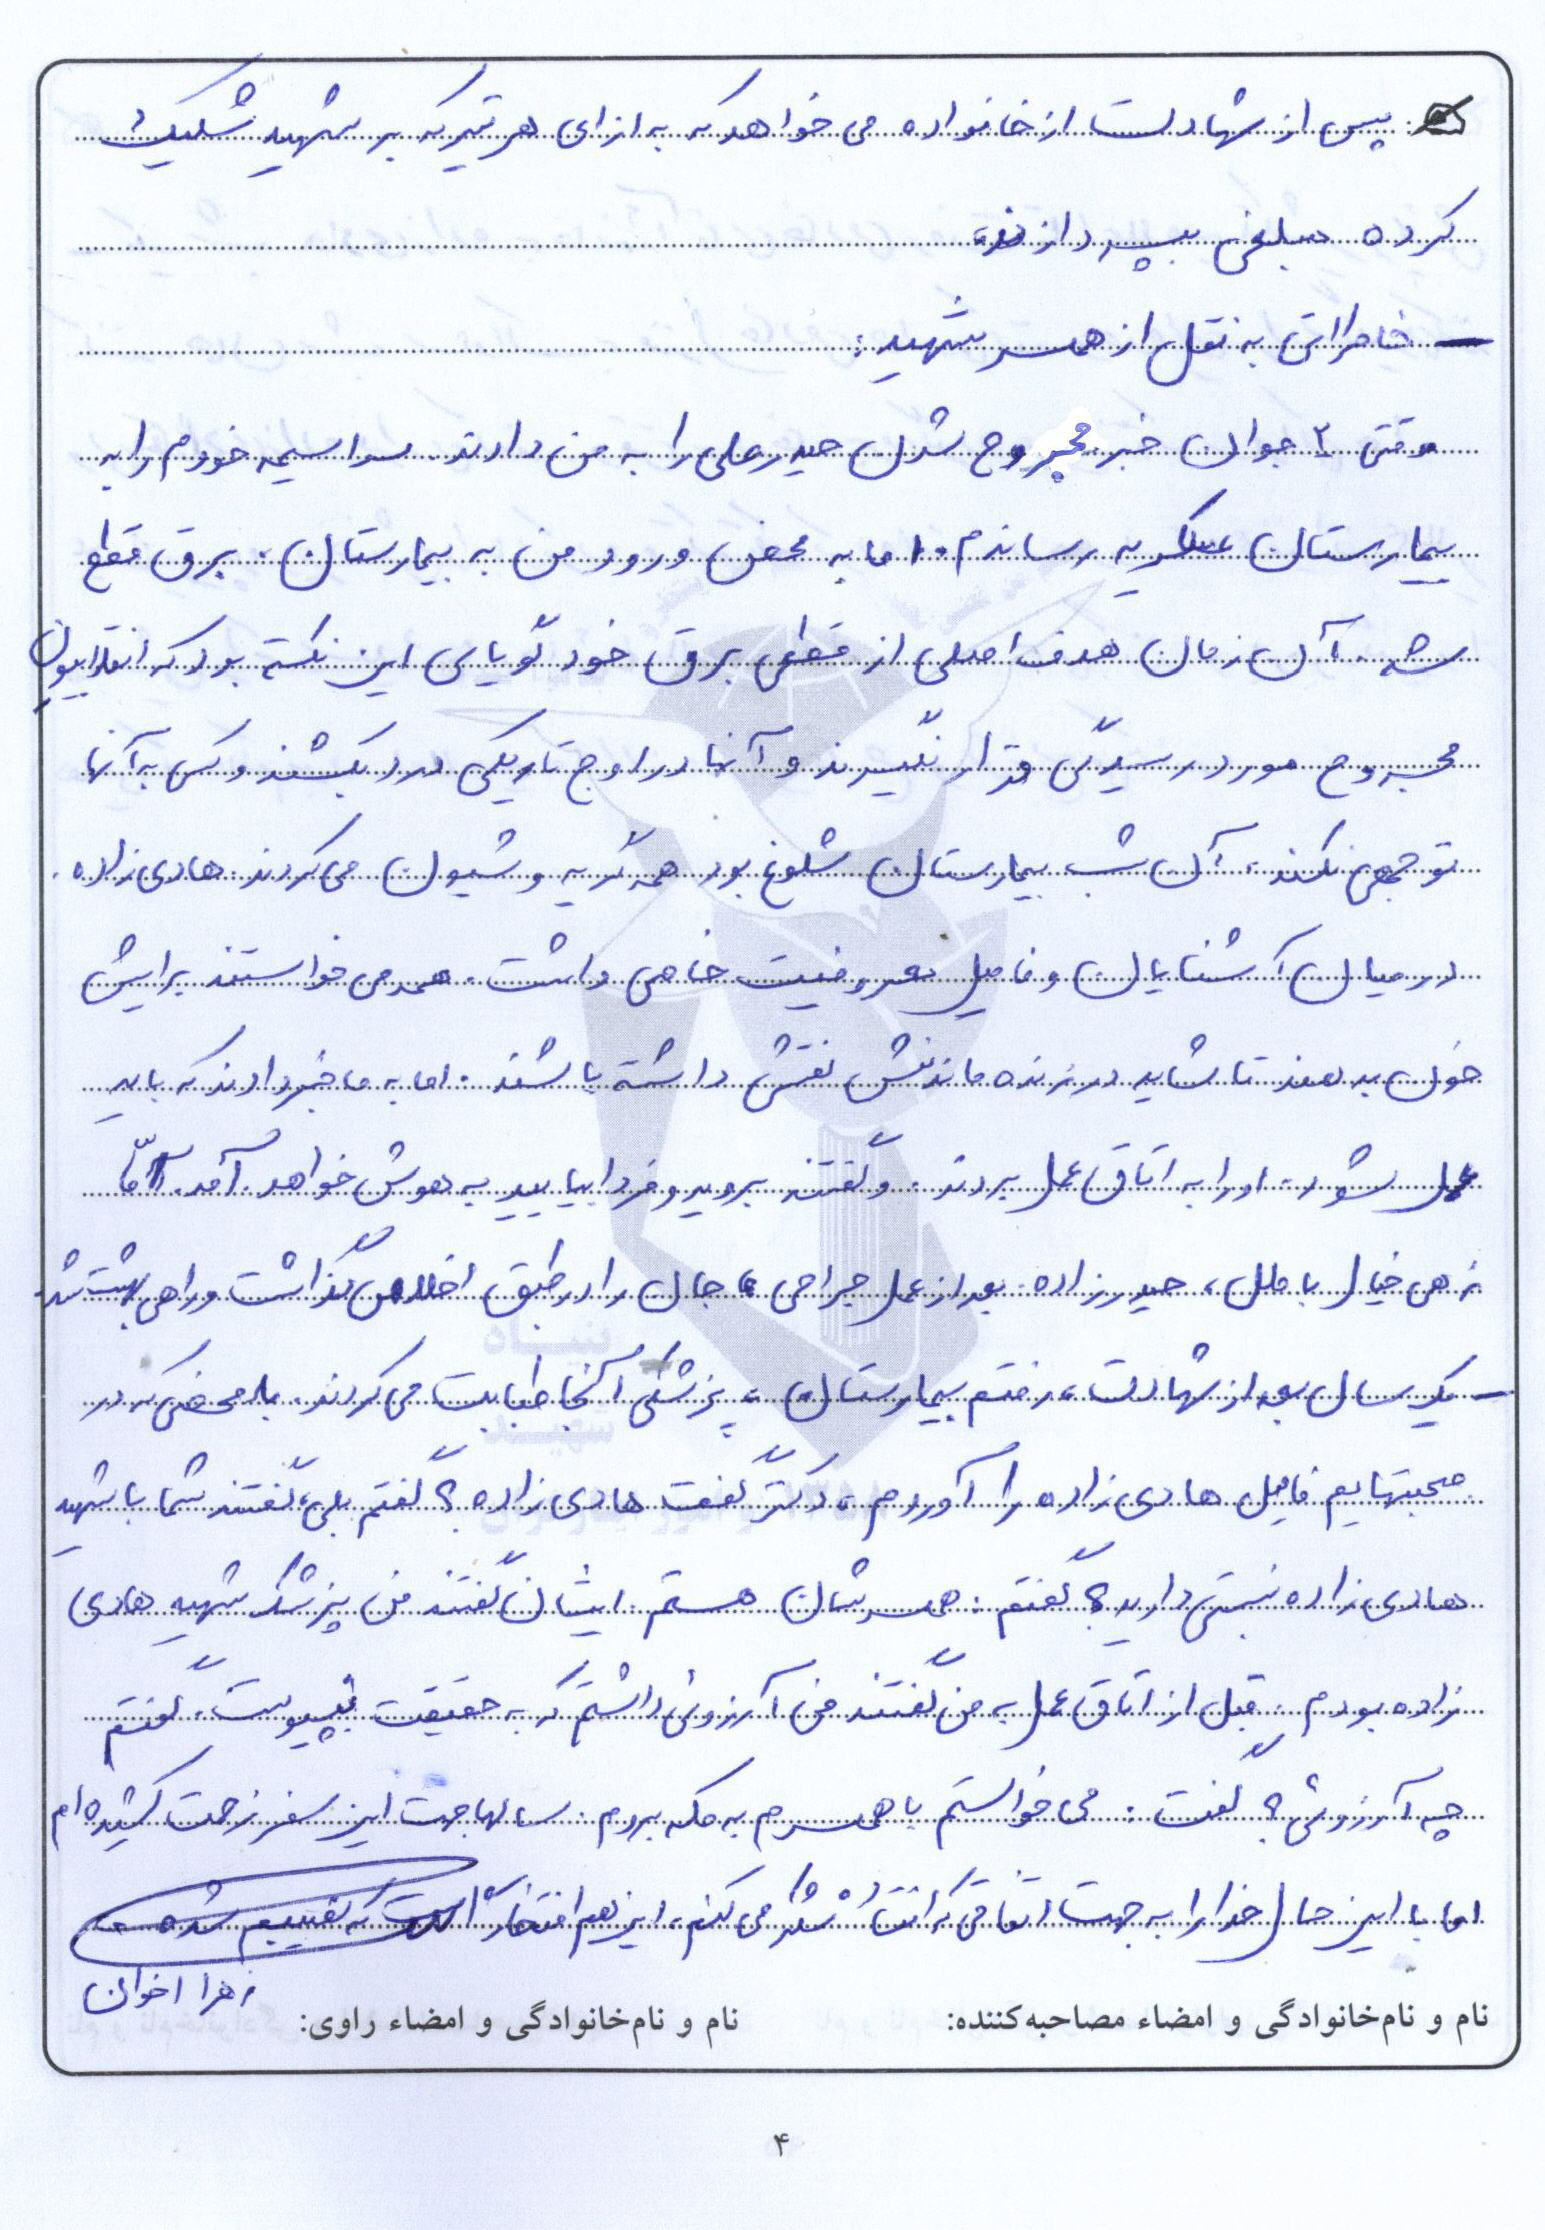 پس از شهادت از خانواده می خواهد که به ازای هر تیر که بر شهید شلیک
کرده مبلغی بپردازند.
- خاطراتی به نقل از همسر شهید:
وقتی ۲ جوان خبر مجروح شدن حیدرعلی را به من دادند. سراسیمه خودم را به
بیمارستان عسکریه رساندم. اما به محض ورود من به بیمارستان، برق قطع
شد. آن زمان هدف اصلی از قطعی برق خود گویای این نکته بود که انقلابیون
مجروح مورد رسیدگی قرار نگیرند و آنها در اوج تاریکی درد بکشند و کسی به آنها
توجهی نکند، آن شب بیمارستان شلوغ بود همه گریه و شیون می کردند. هادی زاده
در میان آشنایان و فامیل معروفیت خاصی داشت. همه می خواستند برایش
خون بدهند تا شاید در زنده ماندنش نقش داشته باشند. اما به ما خبر دادند که باید
عمل شود. او را به اتاق عمل بردند. و گفتند بروید و فردا بیایید به هوش خواهد آمد. امّا
زهی خیال باطل، حیدرزاده بعد از عمل جراحی، جان را در طبق اخلاص گذاشت و راهی بهشت شد.
- یک سال بعد از شهادت، رفتم بیمارستان، پزشکی آنجا طبابت می کردند. به محضی که در
صحبتهایم فامیل هادی زاده را آوردم، دکتر گفت هادی زاده؟ گفتم بلی، گفتند شما با شهید
هادی زاده نسبتی دارید؟ گفتم: همسرشان هستم. ایشان گفتند من پزشک شهید هادی
زاده بودم. قبل از اتاق عمل به من گفتند من آرزوئی داشتم که به حقیقت نپیوست، گفتم
چه آرزوئی؟ گفت: می خواستم با همسرم به مکه بروم. سالها جهت این سفر زحمت کشیده ام
اما با این حال خدا را به جهت اتفاقی که افتاد شکر می کنم، این هم افتخار است که نصیبم شده.
زهرا اخوان
نام و نام‌خانوادگی و امضاء مصاحبه‌کننده: نام و نام‌خانوادگی و امضاء راوی:
۴